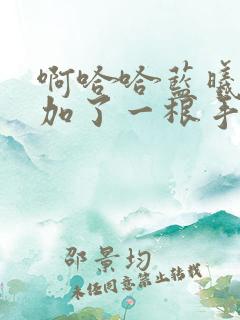 啊哈哈蓝曦
加了一根手
邵景均
未经同意禁止转载